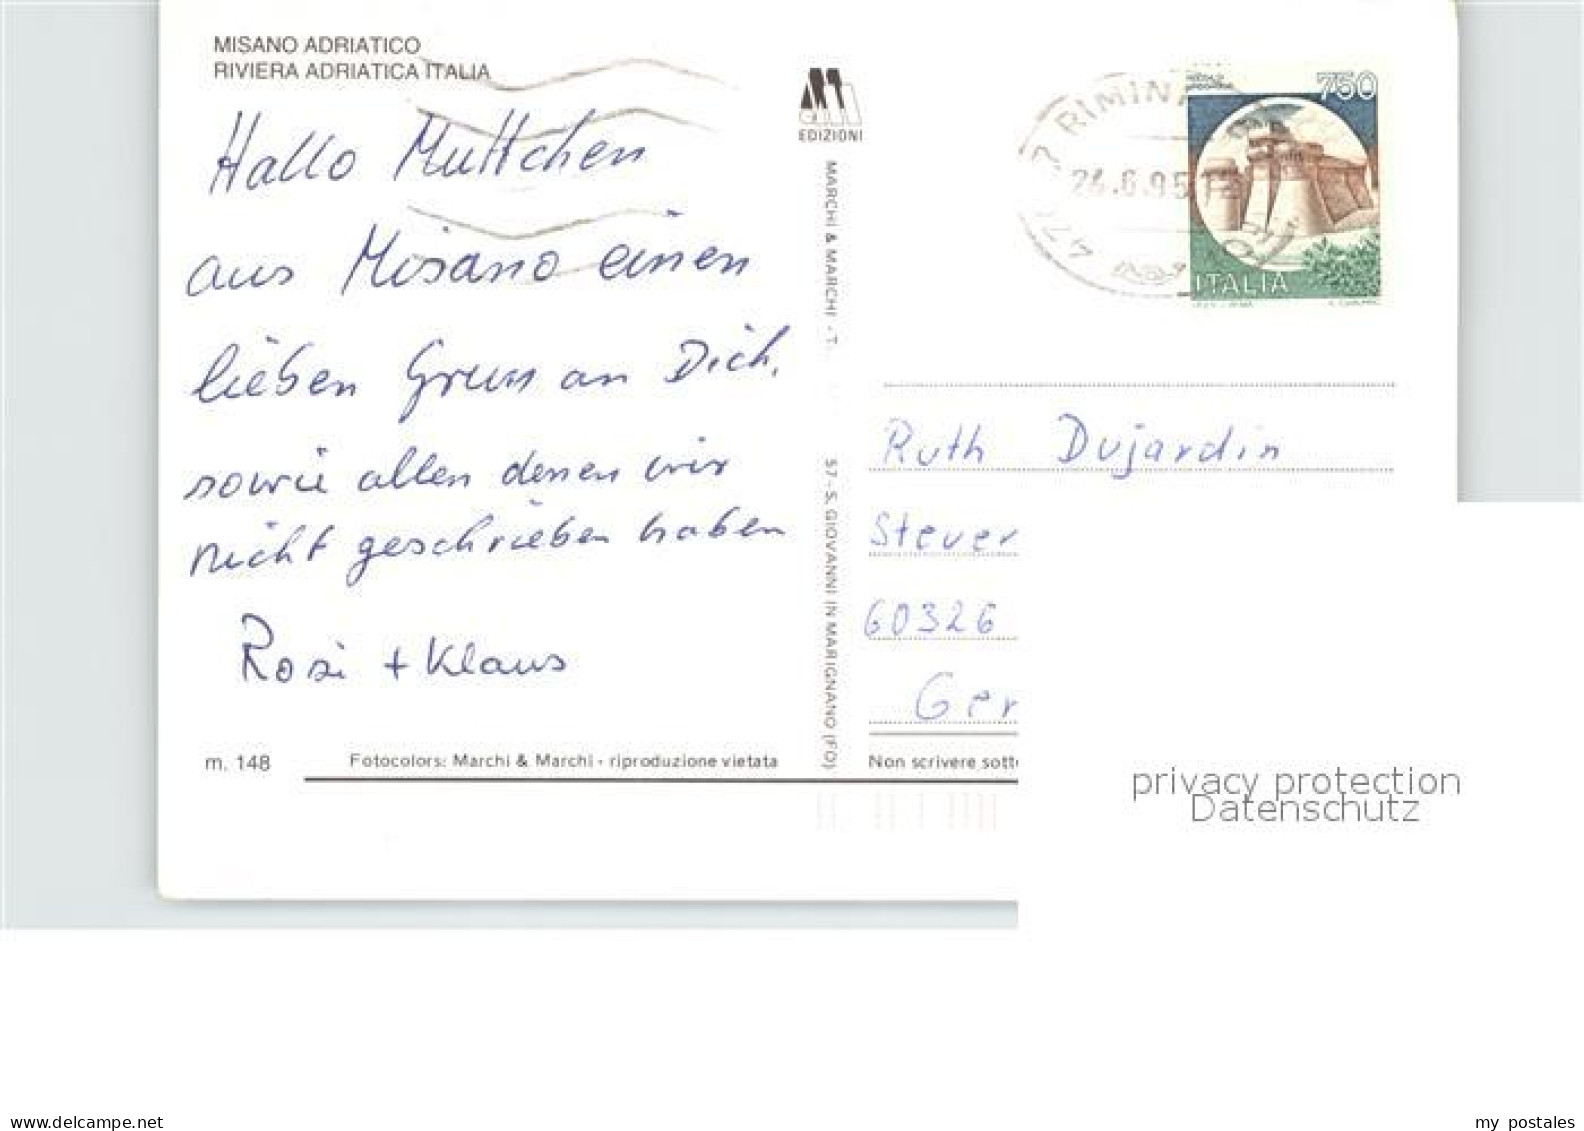 MISANO ADRIATICO
RIVIERA ADRIATICA ITALIA
Hallo Muttchen
aus Misano einen
lieben Gruss an Dich,
sowie allen denen wir
nicht geschrieben haben
Rosi + Klaus
m. 148
Fotocolors: Marchi & Marchi - riproduzione vietata
EDIZIONI
MARCHI & MARCHI - T.
57 - S. GIOVANNI IN MARIGNANO (FO)
RIMINI
24.6.95
750
ITALIA
Ruth Dujardin
Stever
60326
Ger
Non scrivere sott
privacy protection
Datenschutz
www.delcampe.net
my postales